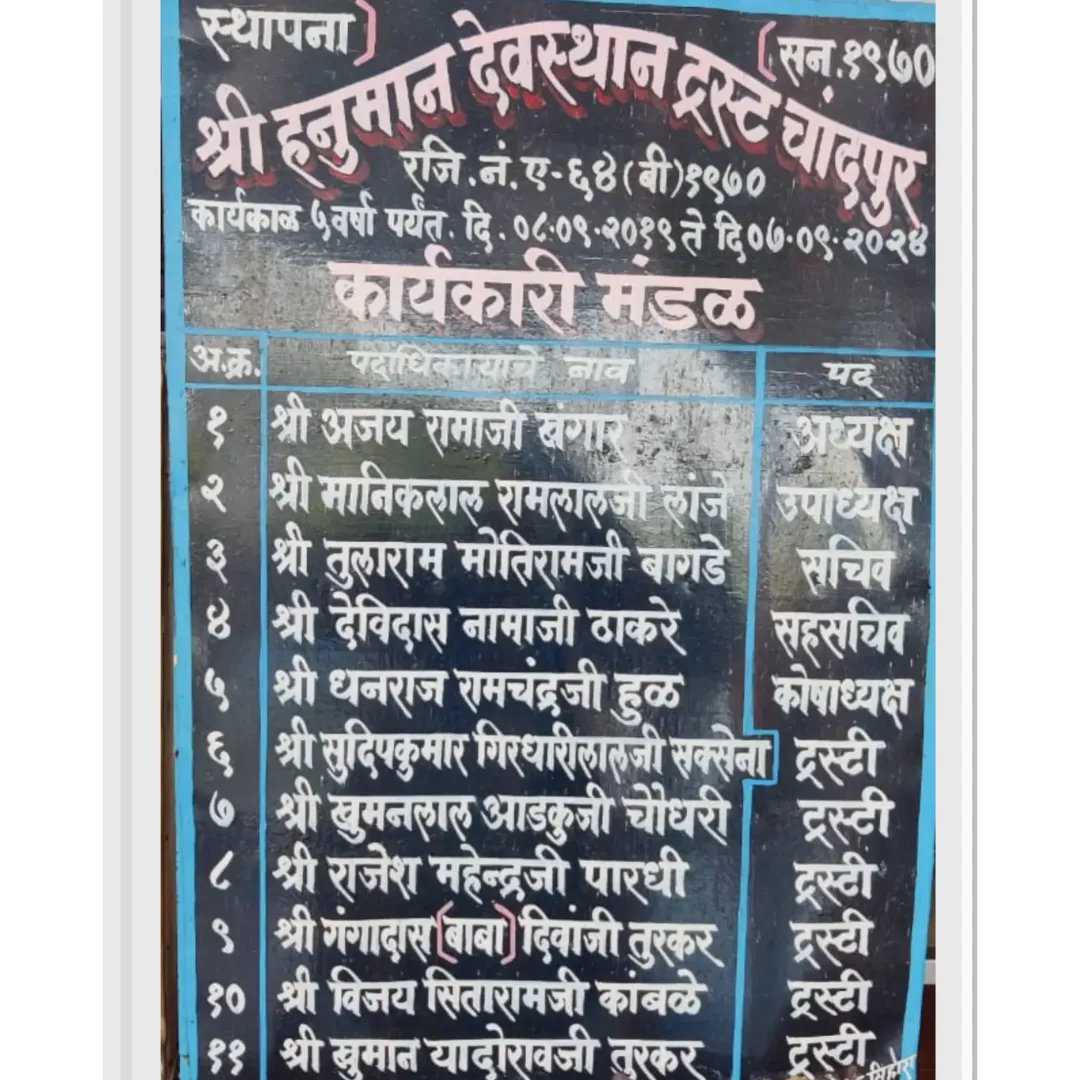 स्थापना) (सन.१९७०
श्री हनुमान देवस्थान ट्रस्ट चांदपुर
रजि.नं.ए-६४(बी)१९७०
कार्यकाळ ५वर्षा पर्यंत. दि. ०८.०९.२०१९ ते दि०७.०९.२०२४
कार्यकारी मंडळ
अ.क्र. पदाधिकायाचे नाव पद
१ श्री अजय रामाजी खंगार अध्यक्ष
२ श्री मानिकलाल रामलालजी लांजे उपाध्यक्ष
३ श्री तुलाराम मोतिरामजी बागडे सचिव
४ श्री देविदास नामाजी ठाकरे सहसचिव
५ श्री धनराज रामचंद्रजी हुळ कोषाध्यक्ष
६ श्री सुदिपकुमार गिरधारीलालजी सक्सेना ट्रस्टी
७ श्री खुमनलाल आडकुजी चौधरी ट्रस्टी
८ श्री राजेश महेन्द्रजी पारधी ट्रस्टी
९ श्री गंगादास(बाबा) दिवांजी तुरकर ट्रस्टी
१० श्री विजय सितारामजी कांबळे ट्रस्टी
११ श्री खुमान यादोरावजी तुरकर ट्रस्टी